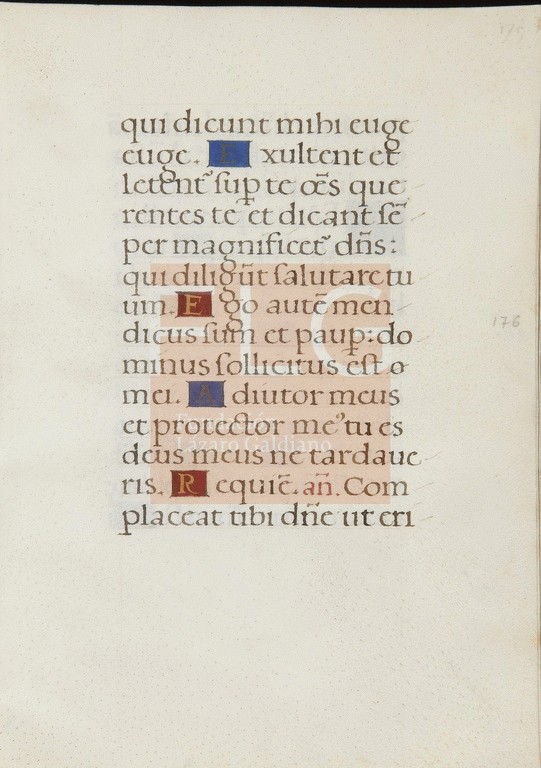 175
qui dicunt mihi euge
euge. Exultent et
letent᷑ sup te oēs que
rentes te et dicant sē
per magnificet᷑ dn̄s:
qui diligūt salutare tu
um. Ego autē men
dicus sum et paup: do
minus sollicitus est o
mei. Adiutor meus
et protector meꝰ tu es
deus meus ne tardaue
ris. Requiē. an̄. Com
placeat tibi dn̄e ut eri
176
FLG
Fundación
Lázaro Galdiano